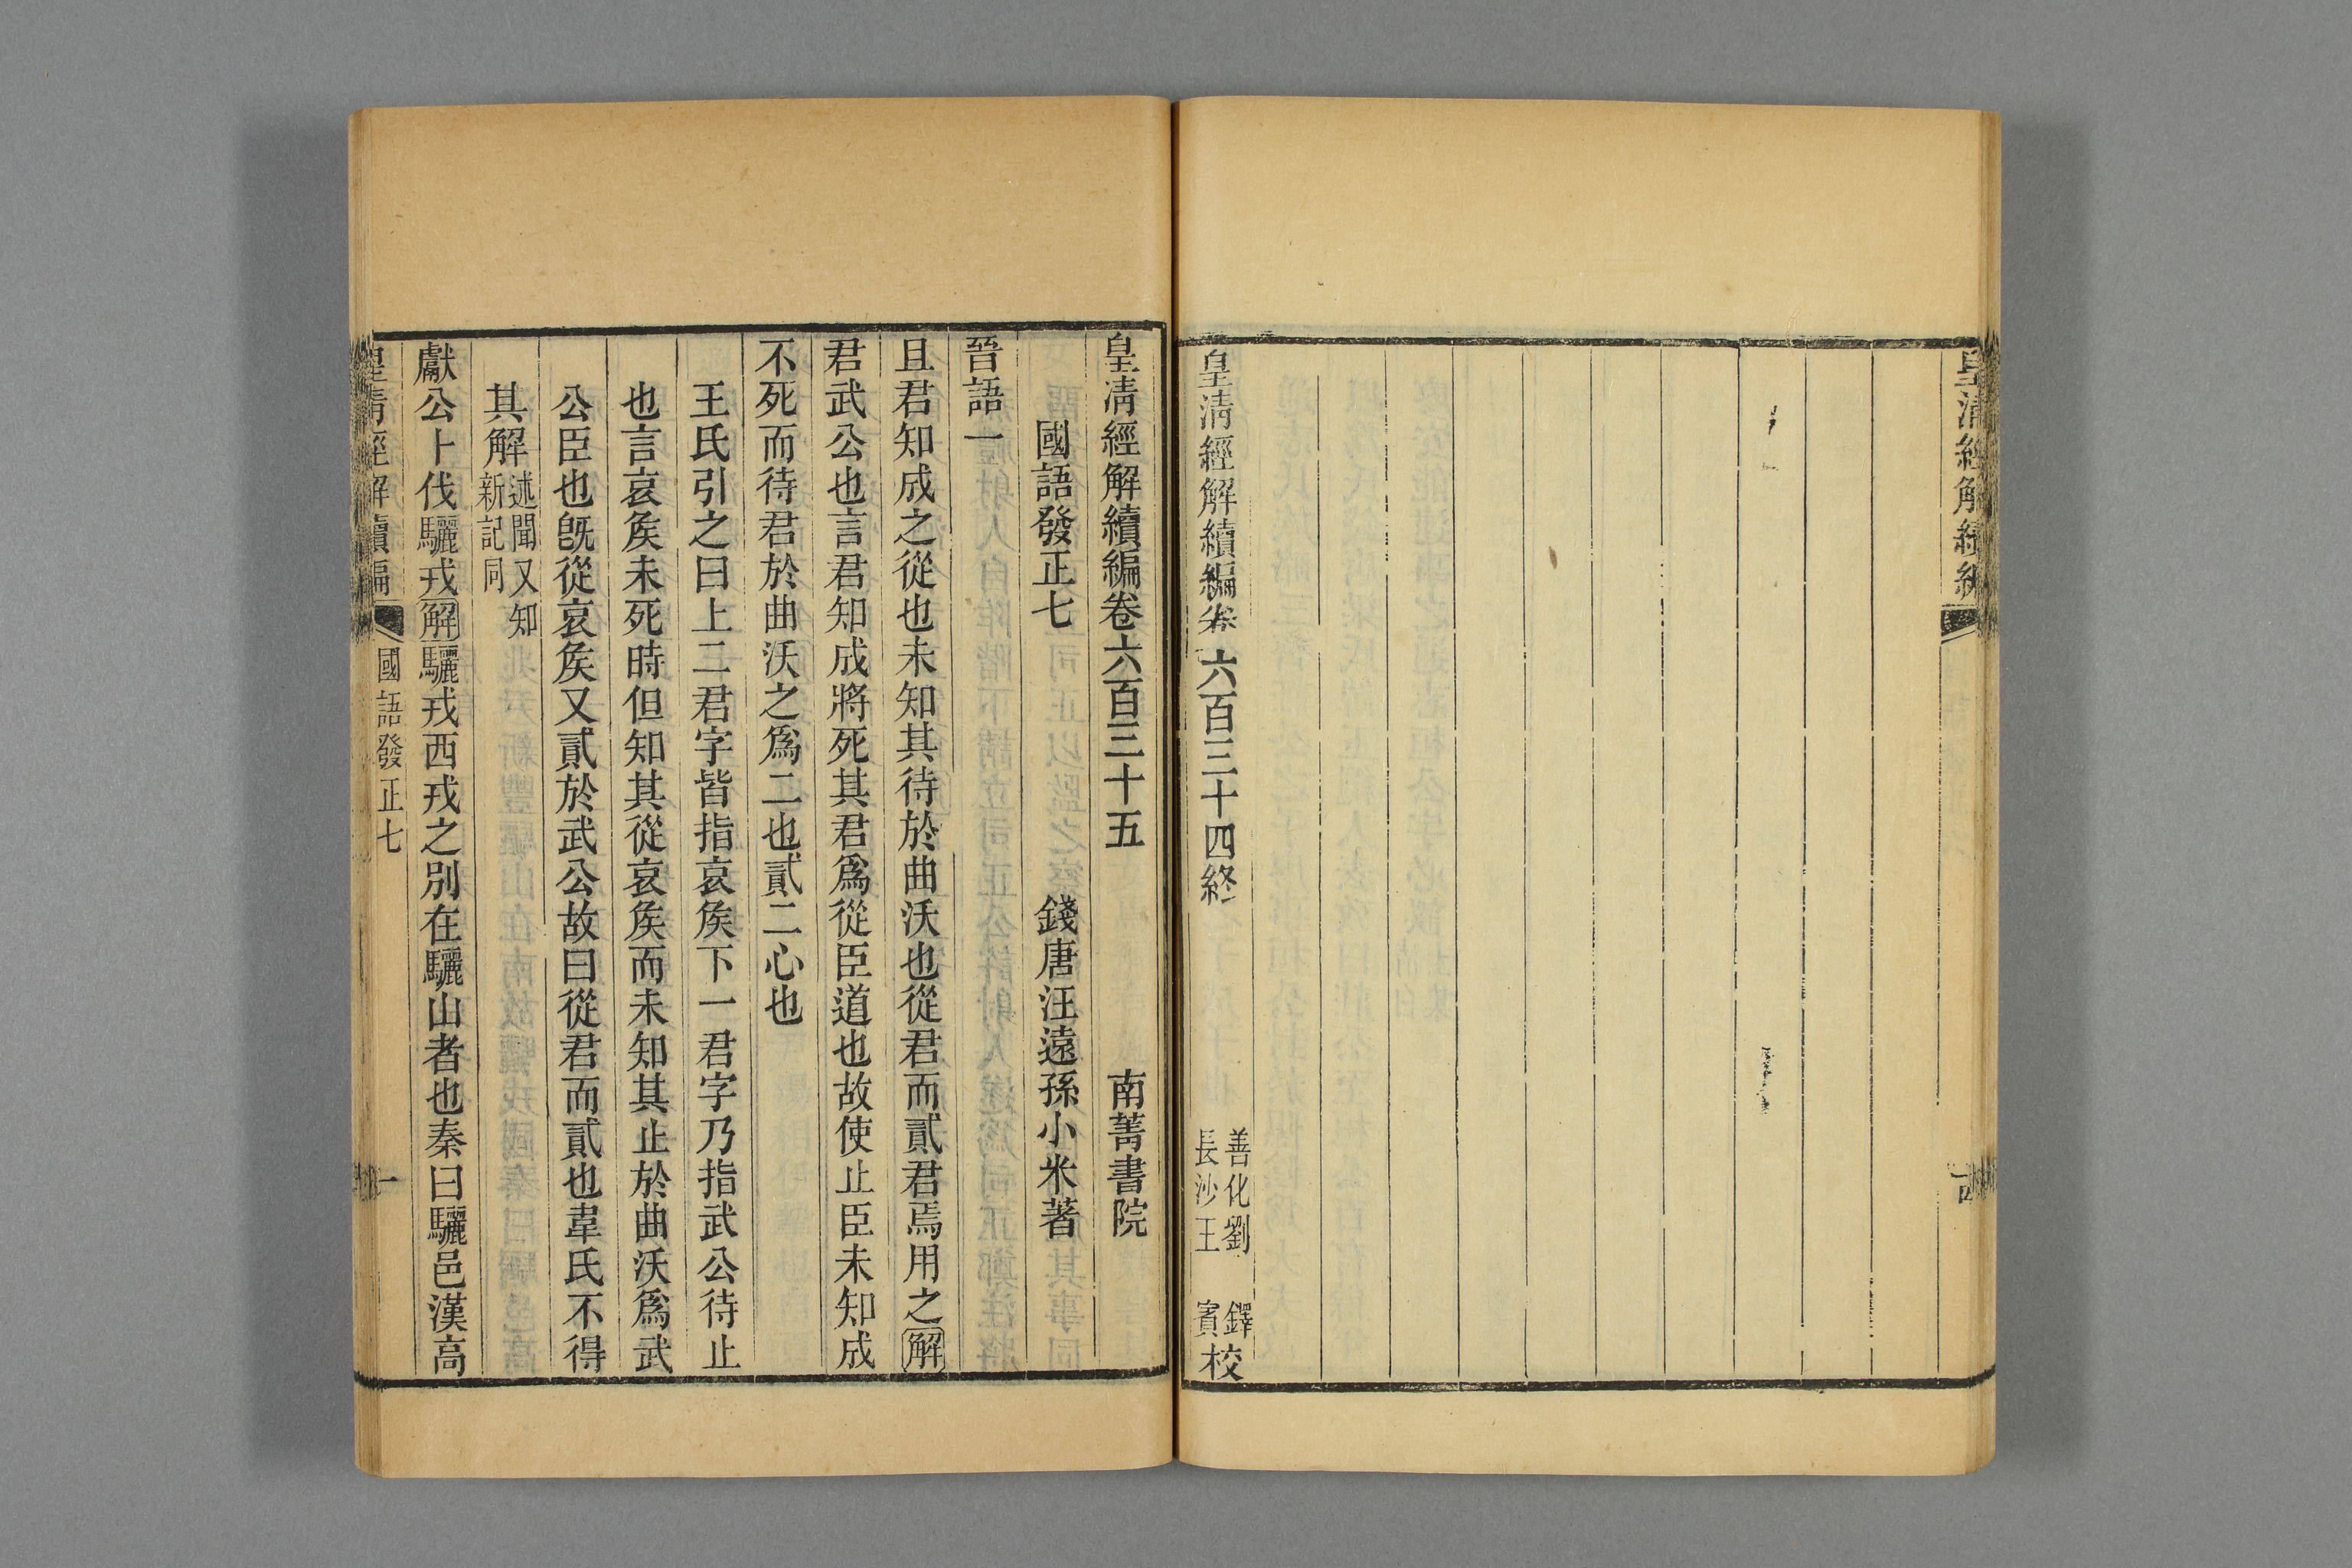 皇清經解續編
十四
皇清經解續編卷六百三十四終
善化劉鐸
長沙王賓校
皇清經解續編卷六百三十五 南菁書院
國語發正七 錢唐汪遠孫小米著
晉語一
且君知成之從也未知其待於曲沃也從君而貳君焉用之解
君武公也言君知成將死其君爲從臣道也故使止臣未知成
不死而待君於曲沃之爲二也貳二心也
王氏引之曰上二君字皆指哀矦下一君字乃指武公待止
也言哀矦未死時但知其從哀矦而未知其止於曲沃爲武
公臣也旣從哀矦又貳於武公故曰從君而貳也韋氏不得
其解述聞又知
新記同
獻公卜伐驪戎解驪戎西戎之別在驪山者也秦曰驪邑漢高
皇清經解續編 國語發正七 一